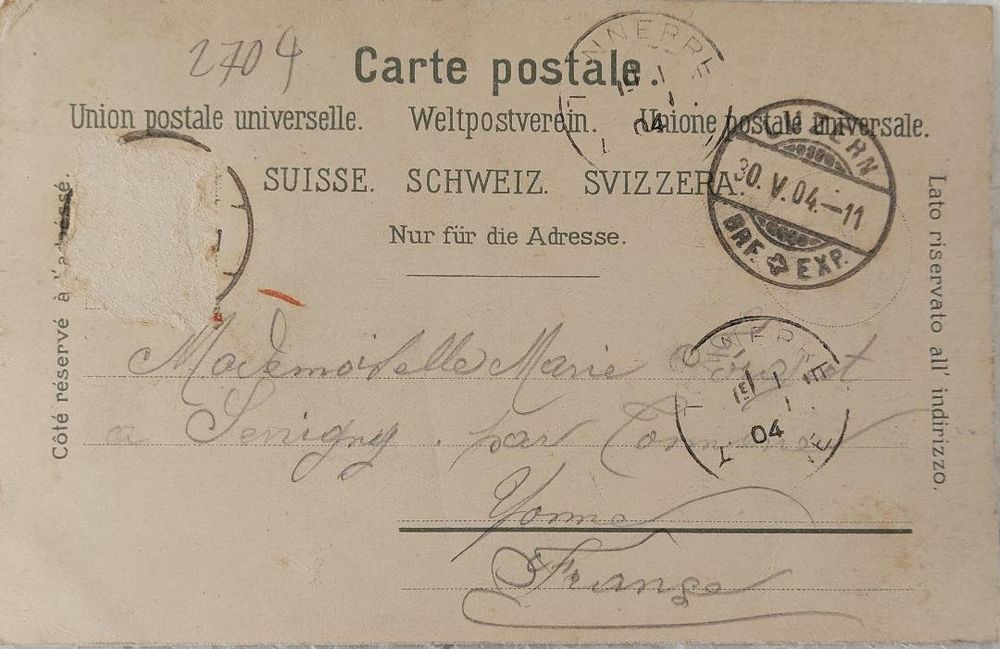 2704
Carte postale.
Union postale universelle. Weltpostverein. Unione postale universale.
SUISSE. SCHWEIZ. SVIZZERA.
Nur für die Adresse.
Côté réservé à l'adresse.
Lato riservato all' indirizzo.
NNERRE
04
LUZERN
30. V. 04.-11
BRF. EXP.
Mademoiselle Marie
à Senigny. par
Yonne
France
NNERRE
1E
04